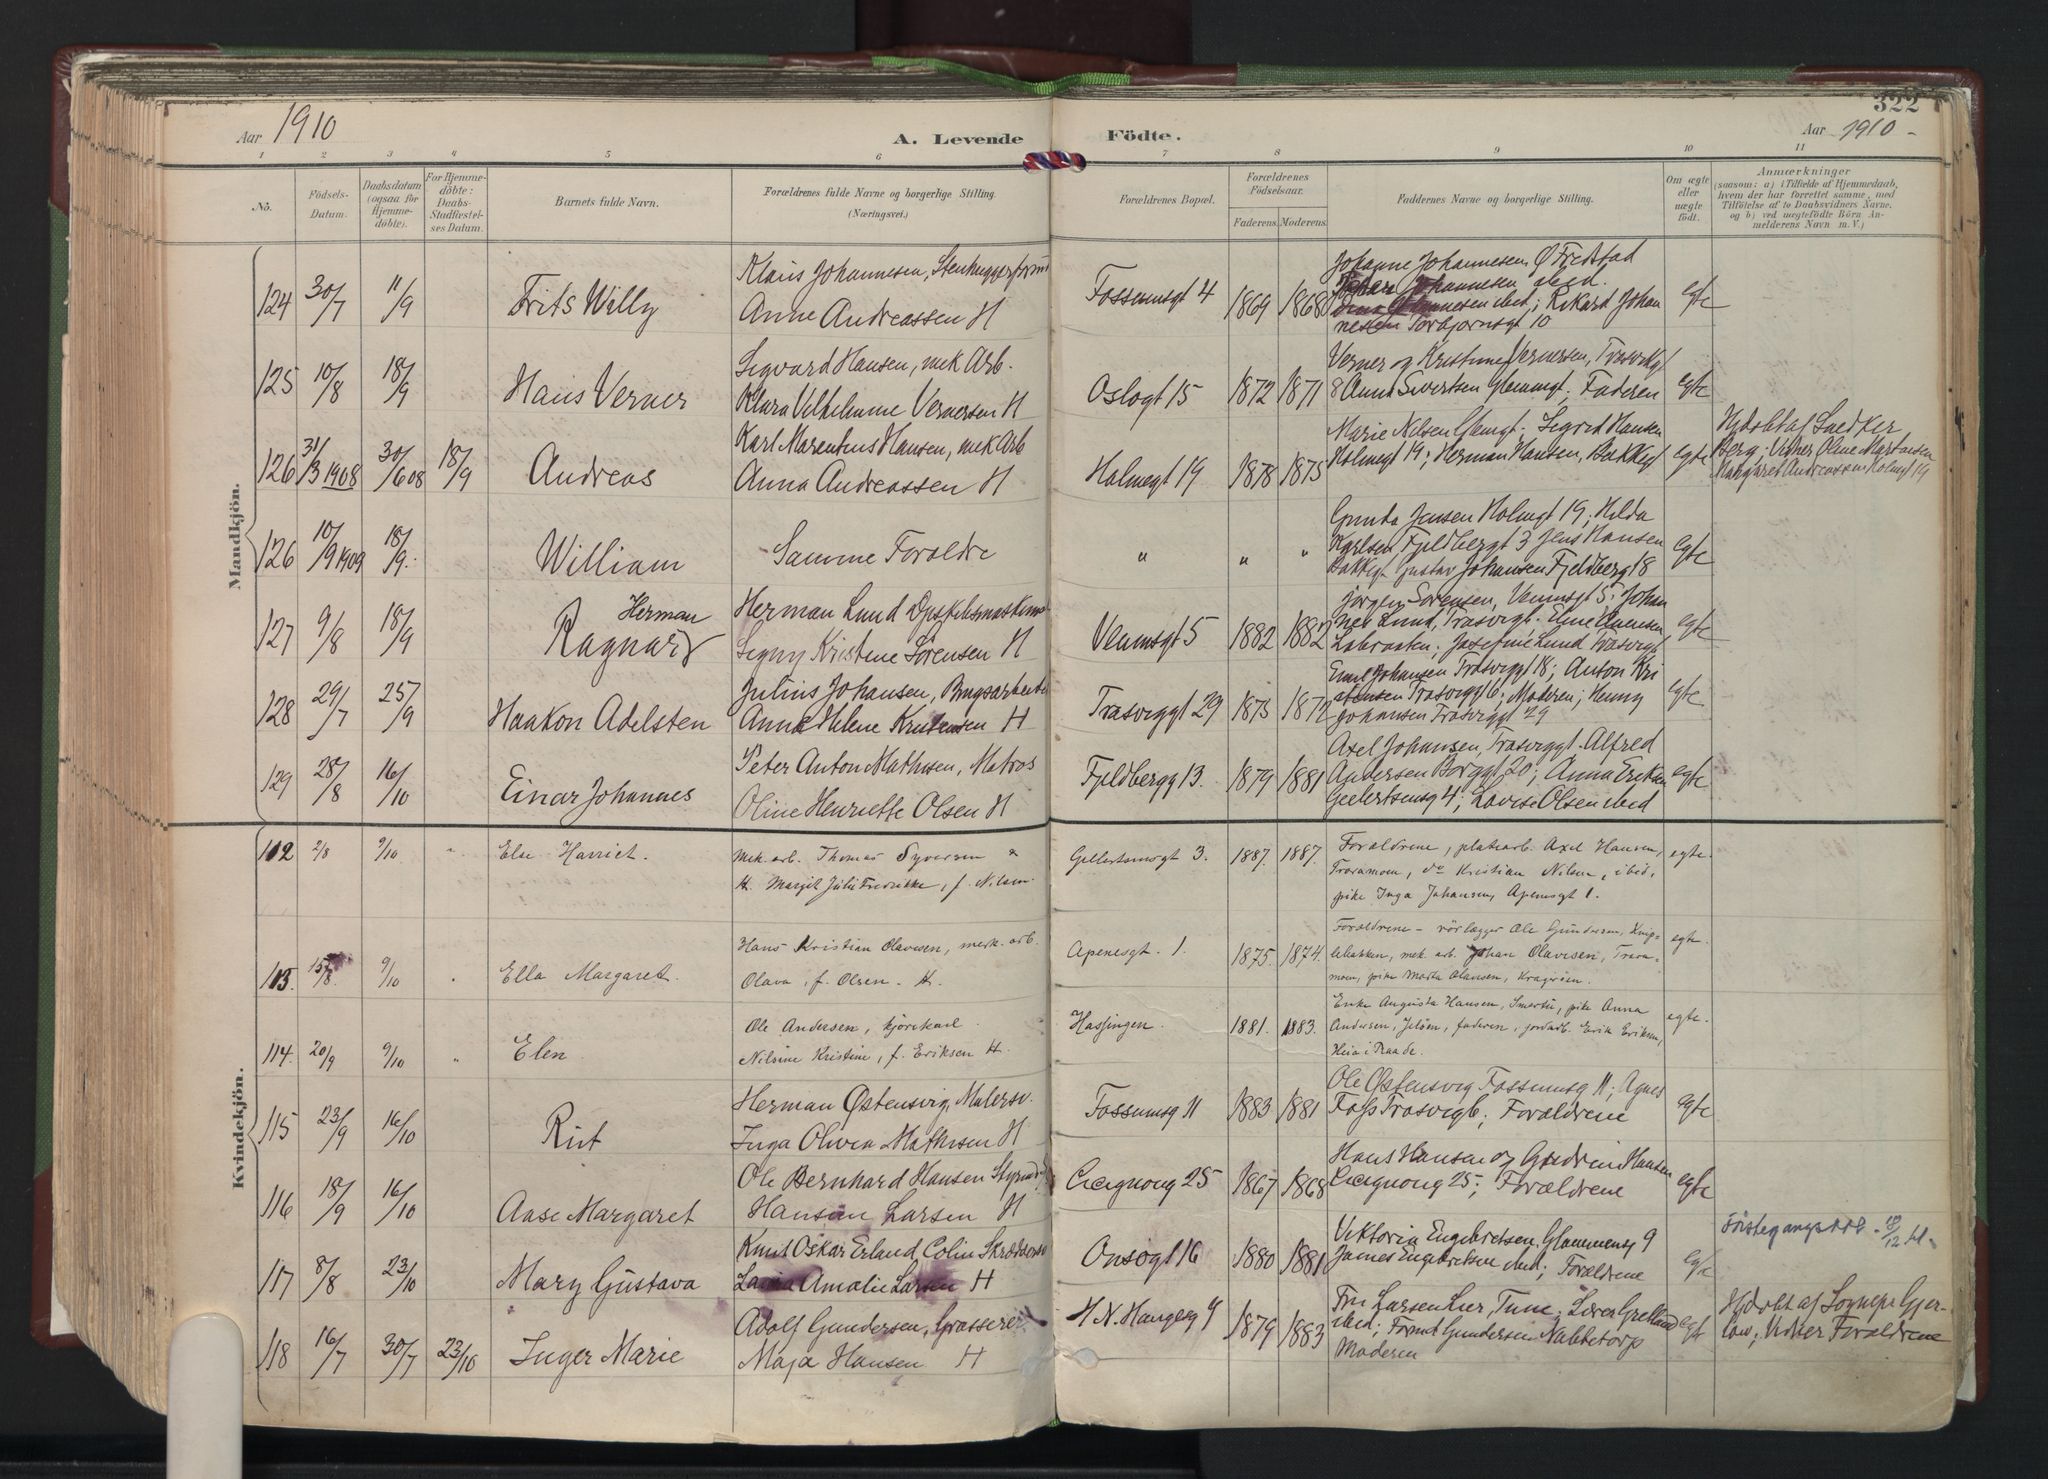 322
Aar 1910
A. Levende Födte.
Aar 1910 -
1 2 3 4 5 6 7 8 9 10 11
Nö.
Födsels-
Datum.
Daabsdatum
(ogsaa for
Hjemme-
döbte).
For Hjemme-
döbte:
Daabs-
Stadfæstel-
ses Datum.
Barnets fulde Navn.
Forældrenes fulde Navne og borgerlige Stilling.
(Næringsvei.)
Forældrenes Bopæl.
Forældrenes
Födselsaar.
Faderens. Moderens.
Faddernes Navne og borgerlige Stilling.
Om ægte
eller
uægte
födt.
Anmærkninger
(saasom: a) i Tilfælde af Hjemmedaab,
hvem der har forrettet samme, med
Tilföielse af to Daabsvidners Navne,
og b) ved uægtefödte Börn An-
melderens Navn m. V.)
Mandkjön.
124 30/7 11/9 Frits Willy
Klaus Johannesen, Stenhugger
Anne Andreassen H
Fossumsgt 4 1869 1868
Johanne Johannesen Ø Fredstad
Johannesen ibed.
Johannesen ibed; Rikard Johan
nesen Torbjornsgt 10
egte
125 10/8 18/9 Hans Verner
Sigvard Hansen, mek Arb.
Klara Vilhelmine Vernersen H
Oslogt 15 1872 1871
Verner og Kristine Vernersen, Trosvikgt
8 Anna Sivertsen Glemmgt; Faderen
egte
126 31/3 1908 30/6 08 18/9 Andreas
Karl Marentius Hansen, mek Arb
Anna Andreassen H
Holmegt 19 1878 1875
Marie Nilsen Glemgt; Sigrid Hansen
Holmegt 19; Herman Hansen, Bakkegt
egte
Hjdobt af Snedker
Berg; Vidner Oline Martinsen
Margaret Andreassen Holmgt 19
126 10/9 1909 18/9. William
Samme Foraldre
" " "
Gunda Jensen Holmgt 19; Hilda
Karlsen Fjeldbergt 3 Jens Hansen
Bakkegt Gustav Johansen Fjeldberg 18
egte
127 9/8 18/9 Ragnar Herman
Herman Lund
Signy Kristine Sörensen H
Veumsgt 5 1882 1882
Jörgen Sorensen, Veumsgt 5; Johan
nes Lund, Trasvigt.
Labraaten; Josefine Lund Trosvigt
egte
128 29/7 25/9 Haakon Adelsten
Julius Johansen, Brugsarbeider
Anne Helene Kristensen H
Trosviggt 29 1873 1872
Emil Johansen Trosviggt 18; Anton Kri
stensen Trosviggt 6; Moderen; Henny
Johansen Trosviggt 29
egte
129 28/8 16/10 Einar Johannes
Peter Anton Mathisen, Matros
Oline Henriette Olsen H
Fjeldbergg 13. 1879 1881
Axel Johansen, Trosviggt. Alfred
Andersen Borggt 20; Anna Eriksen
Geelertsensg 4; Lovise Olsen ibed
egte
Kvindekjön.
112 2/8 9/10 " Else Harriet.
Mek. arb. Thomas Syversen &
H. Margit Julie Fredrikke, f. Nilsen.
Gellertsensgt 3. 1887. 1887.
Forældrene, platearb. Axel Hansen,
Traramoen, do Kristian Nilsen, ibid,
pike Inga Johansen, Apenesgt 1.
egte.
113. 15/8. 9/10 " Ella Margaret.
Hans Kristian Olavesen, mek. arb.
Olava, f. Olsen. H.
Apenesgt. 1. 1875. 1874.
Forældrene - rörlægger Ole Gundersen, Knip-
lebakken, mek. arb. Johan Olavesen, Trara-
moen, pike Marta Olavesen, Krageröen.
egte.
114. 20/9 9/10 " Elen
Ole Andersen, kjörekarl
Nilsine Kristine, f. Eriksen H.
Hassingen. 1881. 1883.
Enke Augusta Hansen, Smertu, pike Anna
Andersen, Jelöen, faderen, jordarb. Erik Eriksen,
Heia i Raade.
egte.
115 23/9 16/10 Rut
Herman Østensvig, Malersv.
Inga Olivia Mathisen H
Fossumsg 11 1883 1881
Ole Østensvig Fossumsg 11; Agnes
Foss Trosvigb; Forældrene
egte
116 18/9 16/10 Aase Margaret
Ole Bernhard Hansen Styrmd
Hansine Larsen H
25 1867 1868
Hans Hansen og Gudrun Hansen
25; Forældrene
egte
117 8/8 23/10 Mary Gustava
Knut Oskar Erland Colin Skreddersv
Lovisa Amalie Larsen H
Onsögt 16 1880 1881
Viktoria Engebretsen, Glommensg 9
James Engebretsen ibed; Forældrene
egte
Förstegangs att.
118 16/7 30/7 23/10 Inger Marie
Adolf Gundersen, Grosserer
Maja Hansen H
H. N. Haugesg 4 1879 1883
Fru Larsen Lier, Tune;
ibed; Gundersen Nabbetorp
Moderen
egte
Hjdobt af Sognepr Gjer-
low; Vidner Forældrene